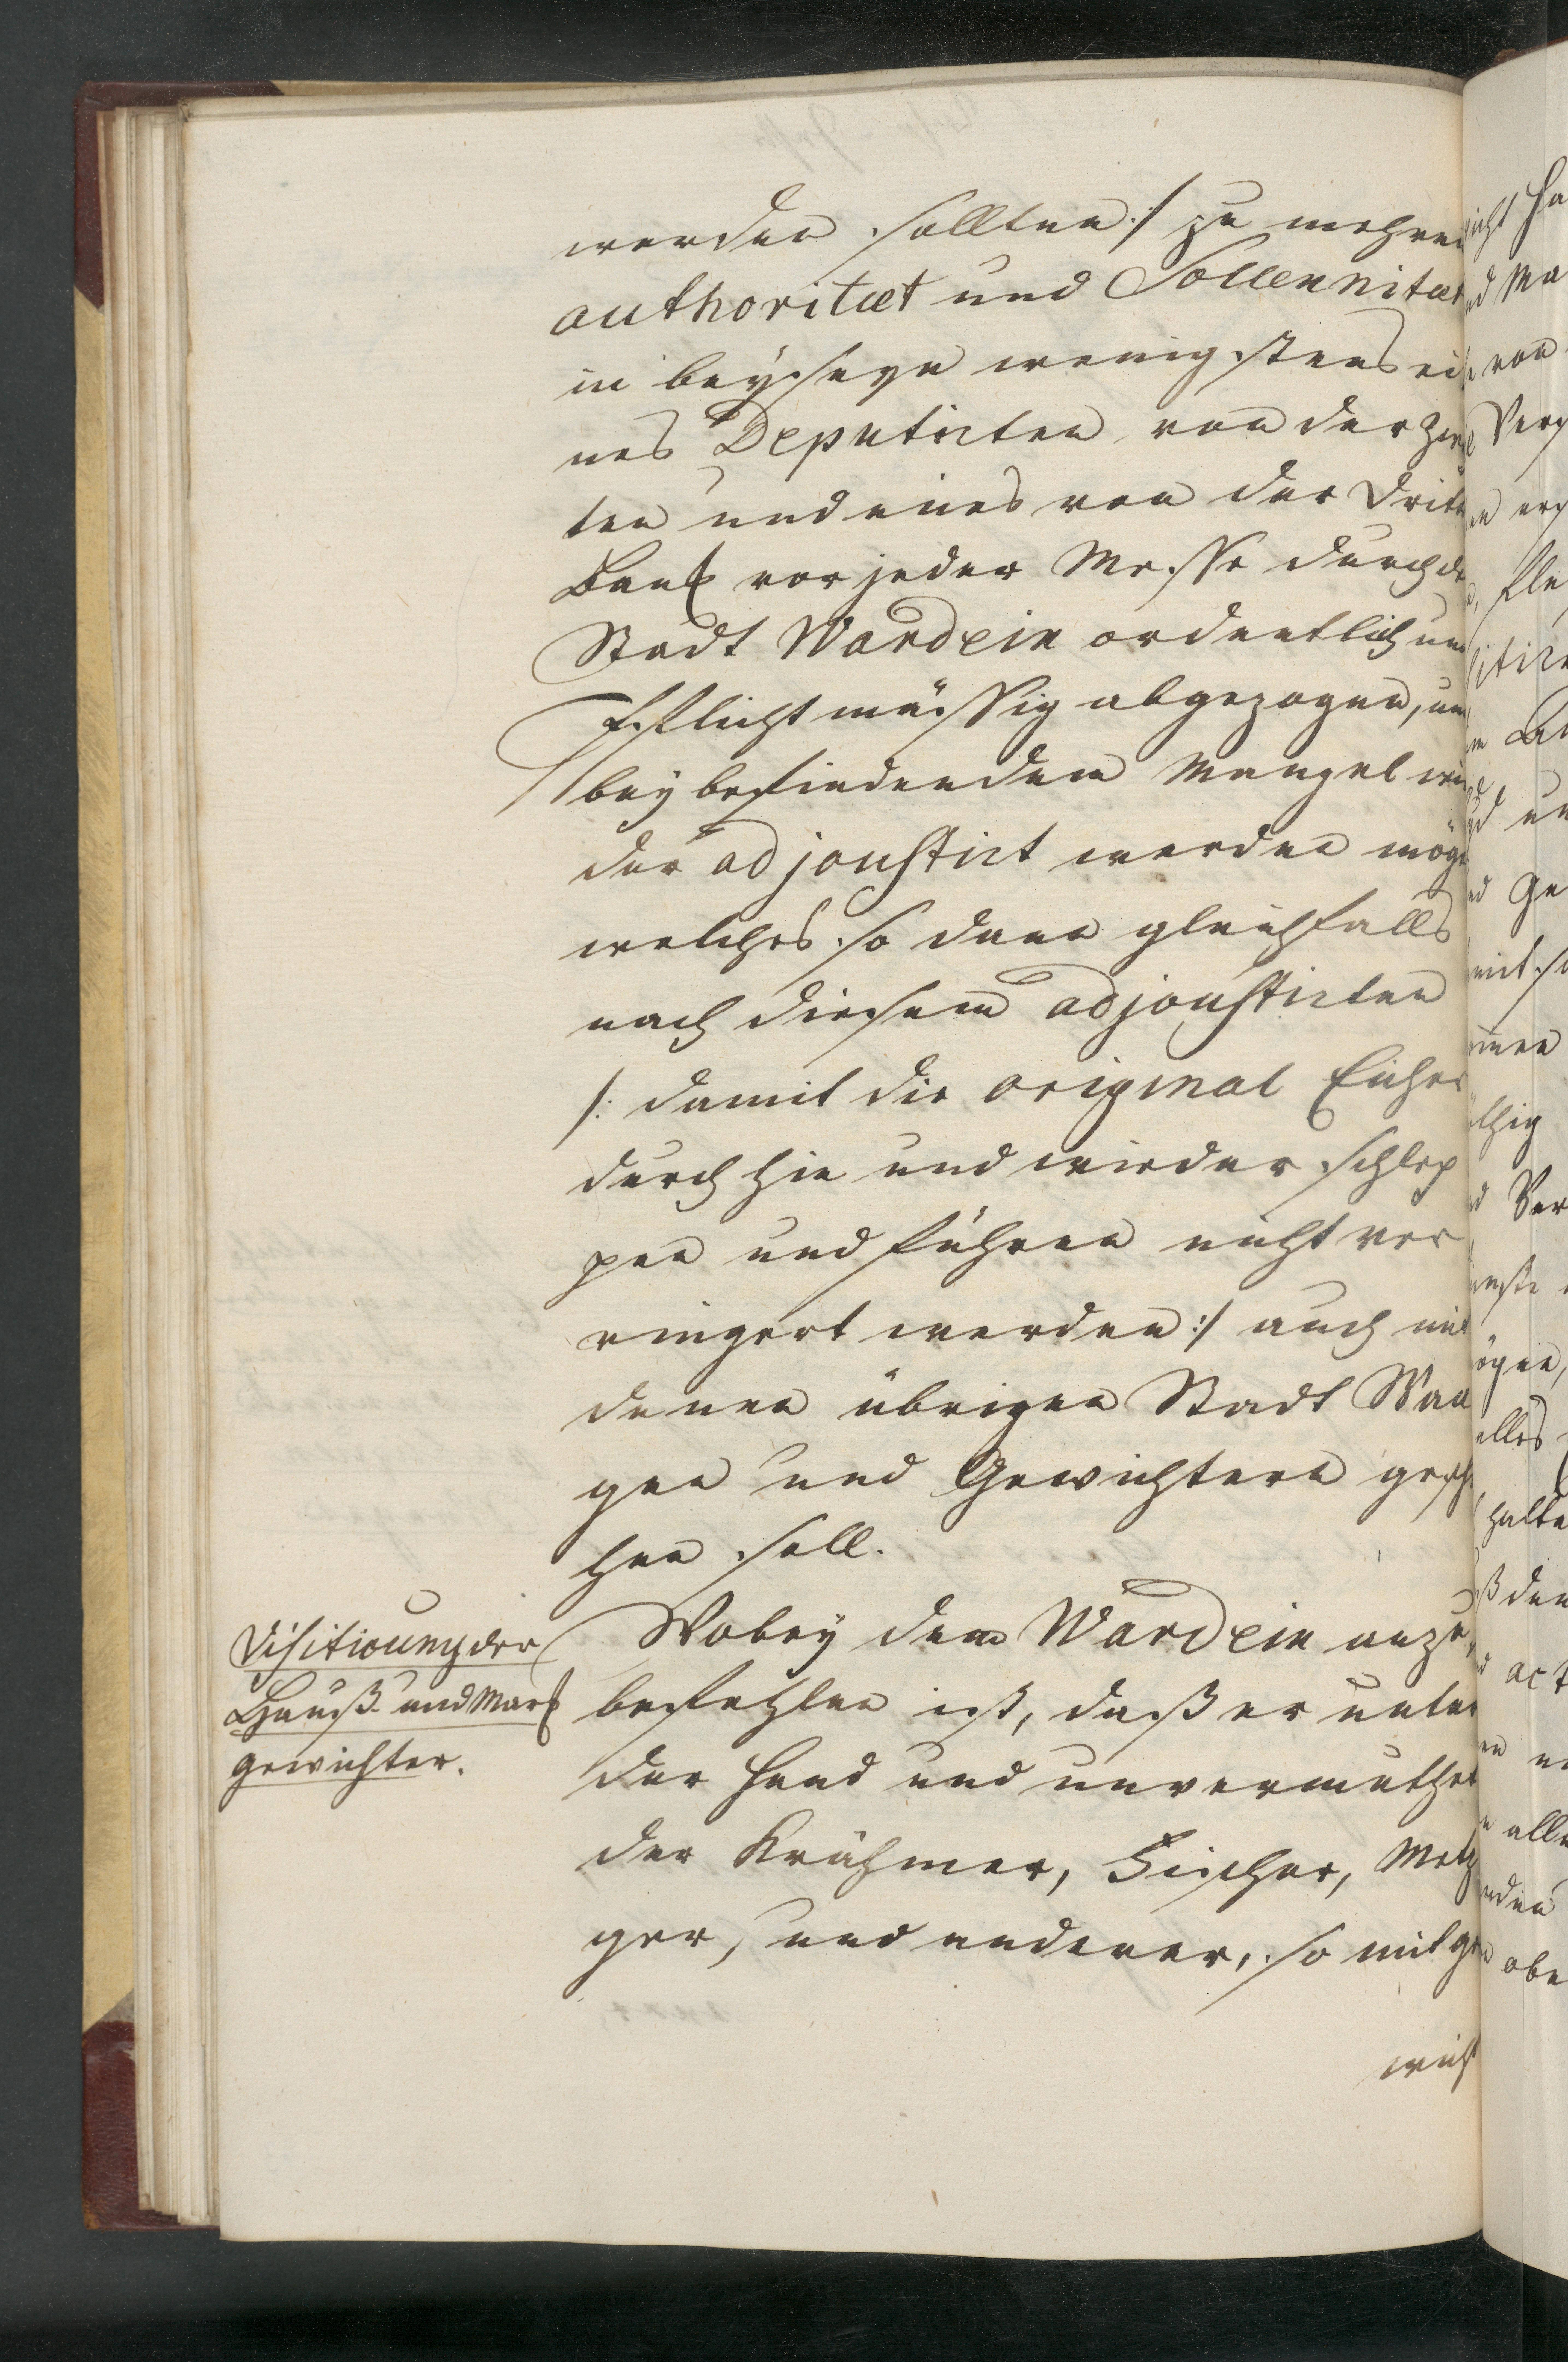 werden sollten :/ zu mehrer
authoritæt und Sollennitæt
in beÿseyn wenigstens ei
nes Deputirten von der zwe
ten und eines von der dritt
Banck vor jeder Messe durch d
Stadt Wardein ordentlich und
Pflichtmässig abgezogen, und
beÿ befindendem Mangel wie
der adjoustirt werden möge
welches so dann gleichfalls
nach diesem adjoustirten
/: damit die original Eicher
durch hin und wieder schlep
pen und führen nicht ver
ringert werden :/ auch mit
denen übrigen Stadt Waa
gen und Gewichtern gesche
hen soll.
Visitirung der
Hauß- und Marck
gewichter.
Wobeÿ dem Wardein anzu
befehlen ist, daß er unter
der Hand und unvermuthet
der Krähmer, Fischer, Metz
ger, und anderer, so mit ge
wicht